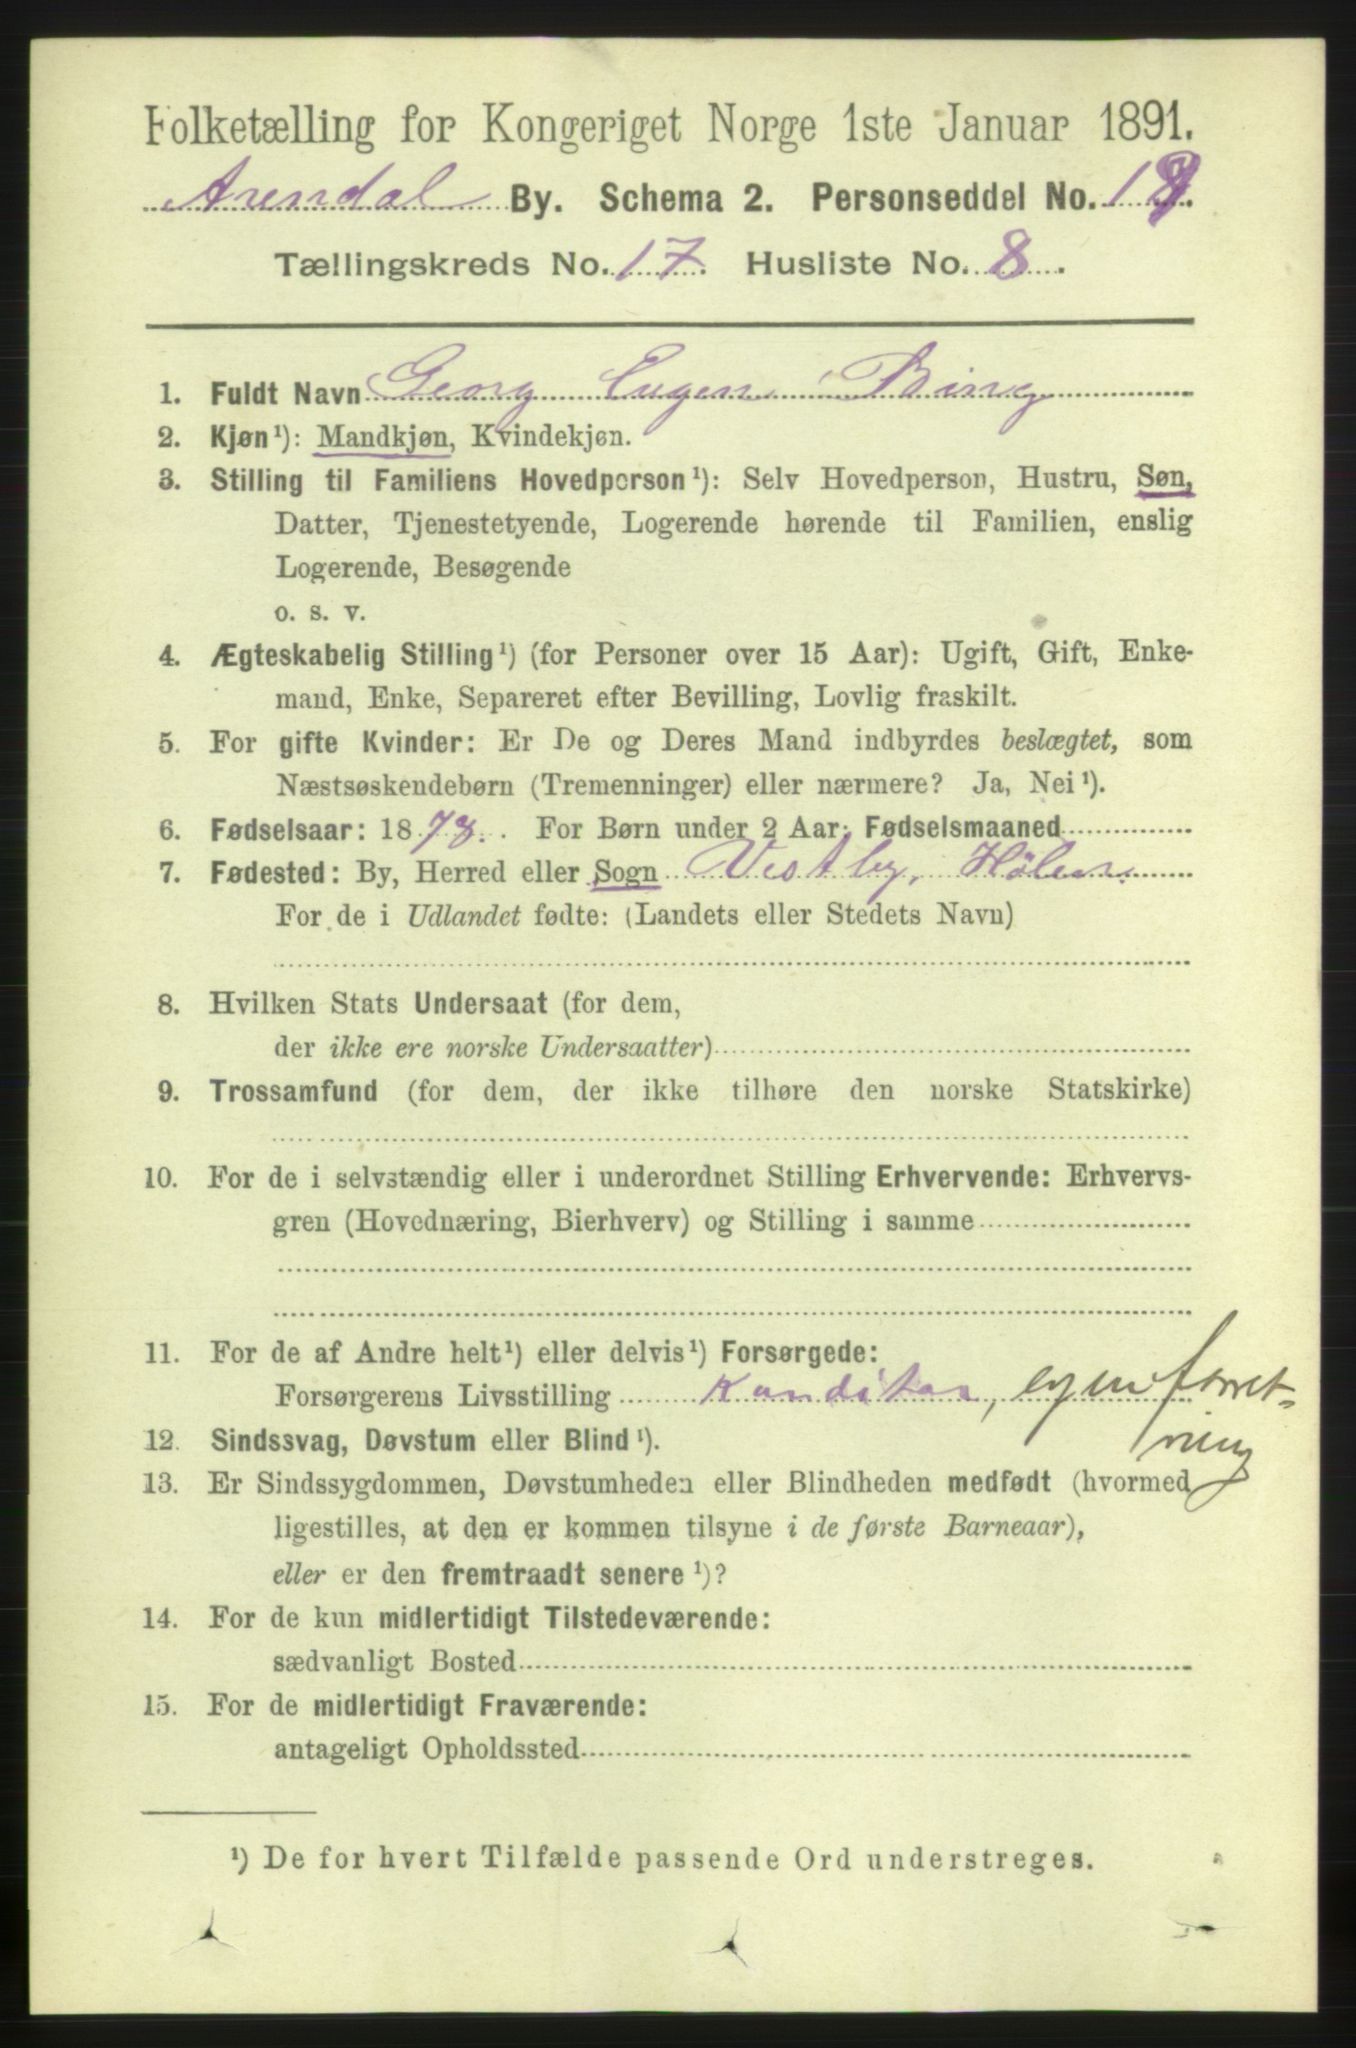 Folketælling for Kongeriget Norge 1ste Januar 1891.
Arendal By. Schema 2. Personseddel No.
Tællingskreds No. 17. Husliste No. 8.
1. Fuldt Navn Georg Eugen Bing
2. Kjøn¹): Mandkjøn, Kvindekjøn.
3. Stilling til Familiens Hovedperson¹): Selv Hovedperson, Hustru, Søn,
Datter, Tjenestetyende, Logerende hørende til Familien, enslig
Logerende, Besøgende
o. s. v.
4. Ægteskabelig Stilling¹) (for Personer over 15 Aar): Ugift, Gift, Enke-
mand, Enke, Separeret efter Bevilling, Lovlig fraskilt.
5. For gifte Kvinder: Er De og Deres Mand indbyrdes beslægtet, som
Næstsøskendebørn (Tremenninger) eller nærmere? Ja, Nei¹).
6. Fødselsaar: 1878. For Børn under 2 Aar: Fødselsmaaned
7. Fødested: By, Herred eller Sogn Vestby, Hölen.
For de i Udlandet fødte: (Landets eller Stedets Navn)
8. Hvilken Stats Undersaat (for dem,
der ikke ere norske Undersaatter)
9. Trossamfund (for dem, der ikke tilhøre den norske Statskirke)
10. For de i selvstændig eller i underordnet Stilling Erhvervende: Erhvervs-
gren (Hovednæring, Bierhverv) og Stilling i samme
11. For de af Andre helt¹) eller delvis¹) Forsørgede:
Forsørgerens Livsstilling Konditor, egen forret-
ning
12. Sindssvag, Døvstum eller Blind¹).
13. Er Sindssygdommen, Døvstumheden eller Blindheden medfødt (hvormed
ligestilles, at den er kommen tilsyne i de første Barneaar),
eller er den fremtraadt senere¹)?
14. For de kun midlertidigt Tilstedeværende:
sædvanligt Bosted
15. For de midlertidigt Fraværende:
antageligt Opholdssted
¹) De for hvert Tilfælde passende Ord understreges.